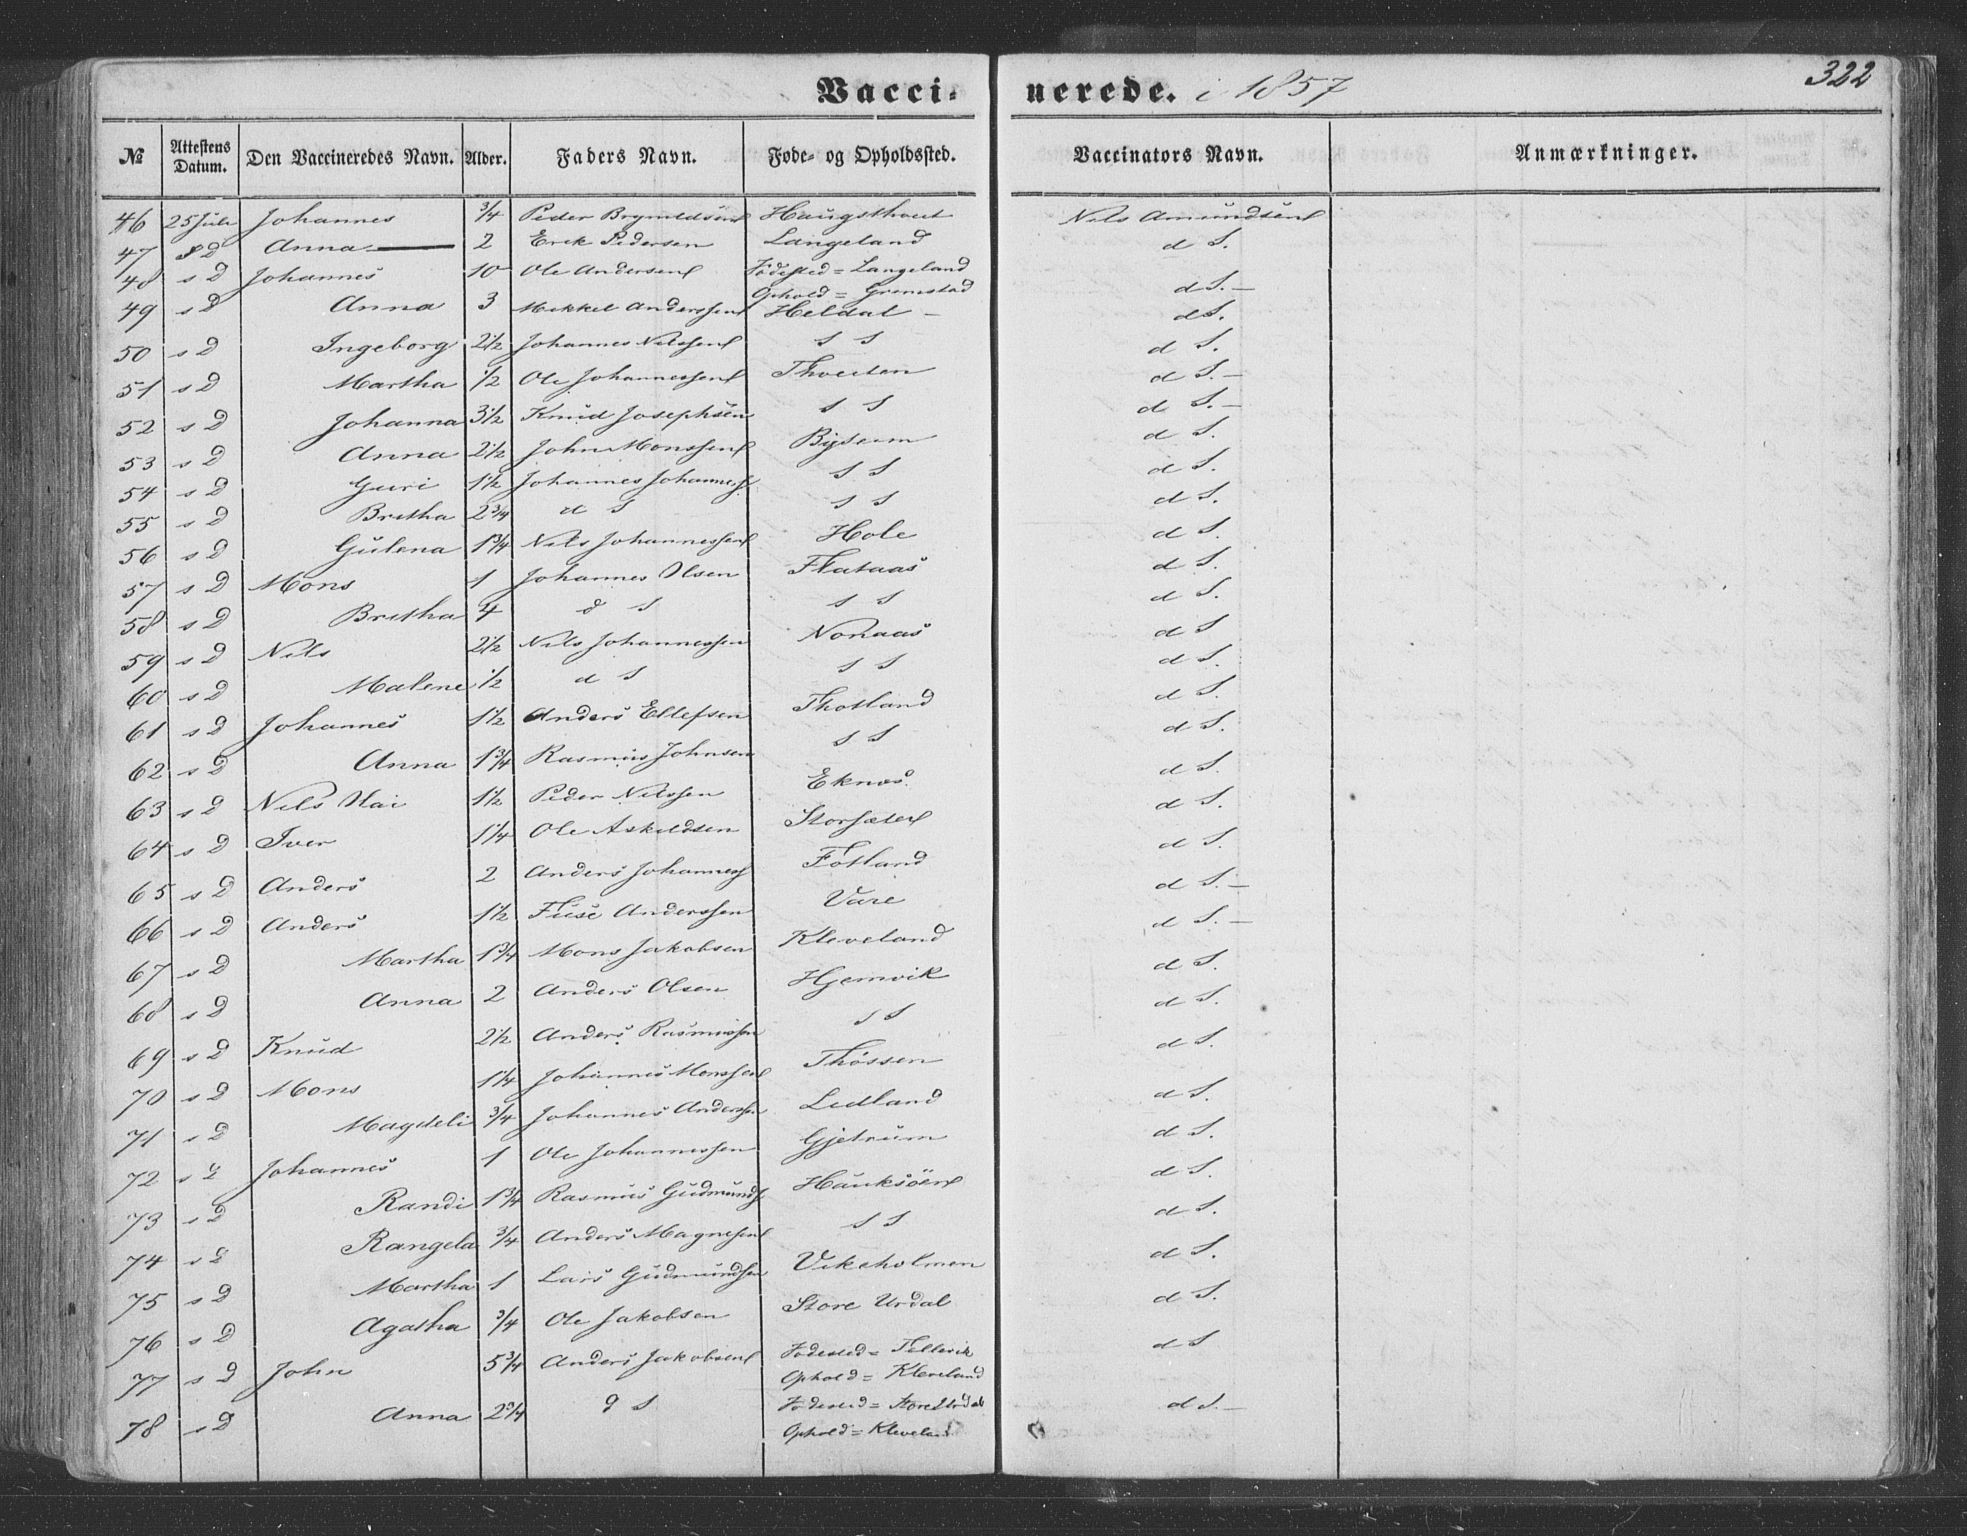 322
Vacci- nerede. i 1857
№ Attestens Datum. Den Vaccineredes Navn. Alder. Faders Navn. Føde- og Opholdssted. Vaccinators Navn. Anmærkninger.
46 25 Juli Johannes 3/4 Peder Haugsthvet Nils Amundsen
47 s D Anna 2 Erik Pedersen Langeland d S.
48 s D Johannes 10 Ole Andersen Födested = Langeland
Ophold = Gremstad d S.-
49 s D Anna 3 Mikkel Anderssen Heldal - d S.
50 s D Ingeborg 2 1/2 Johannes Nilssen s S d S.
51 s D Martha 1/2 Ole Johannessen Thveiten d S.-
52 s D Johanna 3 1/2 Knud Josephsen s S d S.-
53 s D Anna 2 1/2 John Monssen Bysem d S.
54 s D Guri 1 1/2 Johannes Johannes s S d S.
55 s D Britha 2 3/4 d S s S d S.
56 s D Gulena 1 3/4 Nils Johannessen Hole d S.
57 s D Mons 1 Johannes Olsen Flataas d S.
58 s D Britha 4 d S s S d S.
59 s D Nils 2 1/2 Nils Johannessen Nonaas d S
60 s D Malene 1/2 d S s S d S.
61 s D Johannes 1 1/2 Anders Ellefsen Thotland d S.
62 s D Anna 1 3/4 Rasmus Johnsen s S d S.
63 s D Nils 1 1/2 Peder Nilssen Eknes. d S.
64 s D Iver 1 1/4 Ole Askildsen Storsæter d S.
65 s D Anders 2 Anders Johanness Fotland d S.
66 s D Anders 1 1/2 Fuse Anderssen Vare d S.-
67 s D Martha 1 3/4 Mons Jakobsen Kleveland d S.-
68 s D Anna 2 Anders Olsen Hjemvik d S.
69 s D Knud 2 1/2 Anders Rasmussen s S d S.
70 s D Mons 1 1/4 Johannes Monssen Thössen d S.
71 s D Magdeli 3/4 Johannes Anderssen Ledland d S.
72 s D Johannes 1 Ole Johannessen Gjetrum d S.
73 s D Randi 1 3/4 Rasmus Gudmunds Hauksöen d S.
74 s D Rangela 3/4 Anders Magnesen s S d S.
75 s D Martha 1 Lars Gudmundsen Vikeholmen d S.
76 s D Agatha 3/4 Ole Jakobsen Store Urdal d S.
77 s D John 5 3/4 Anders Jakobsen Födested = Tellevik
Ophold = Kleveland d S
78 s D Anna 2 3/4 d S Födested = Store Urdal
Ophold = Kleveland d S.-